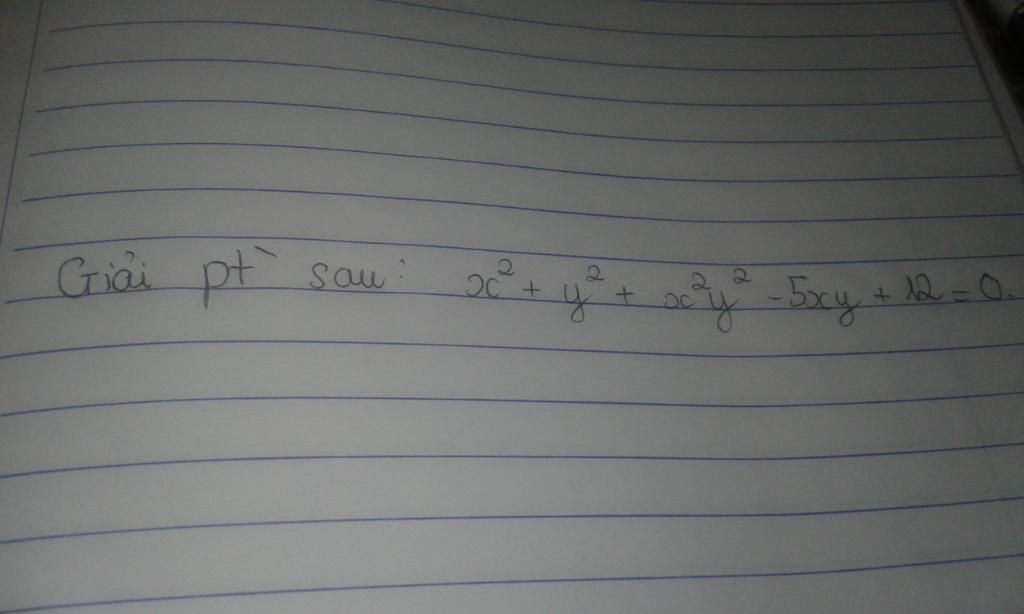 Giải pt` sau: x² + y² + x²y² - 5xy + 12 = 0.